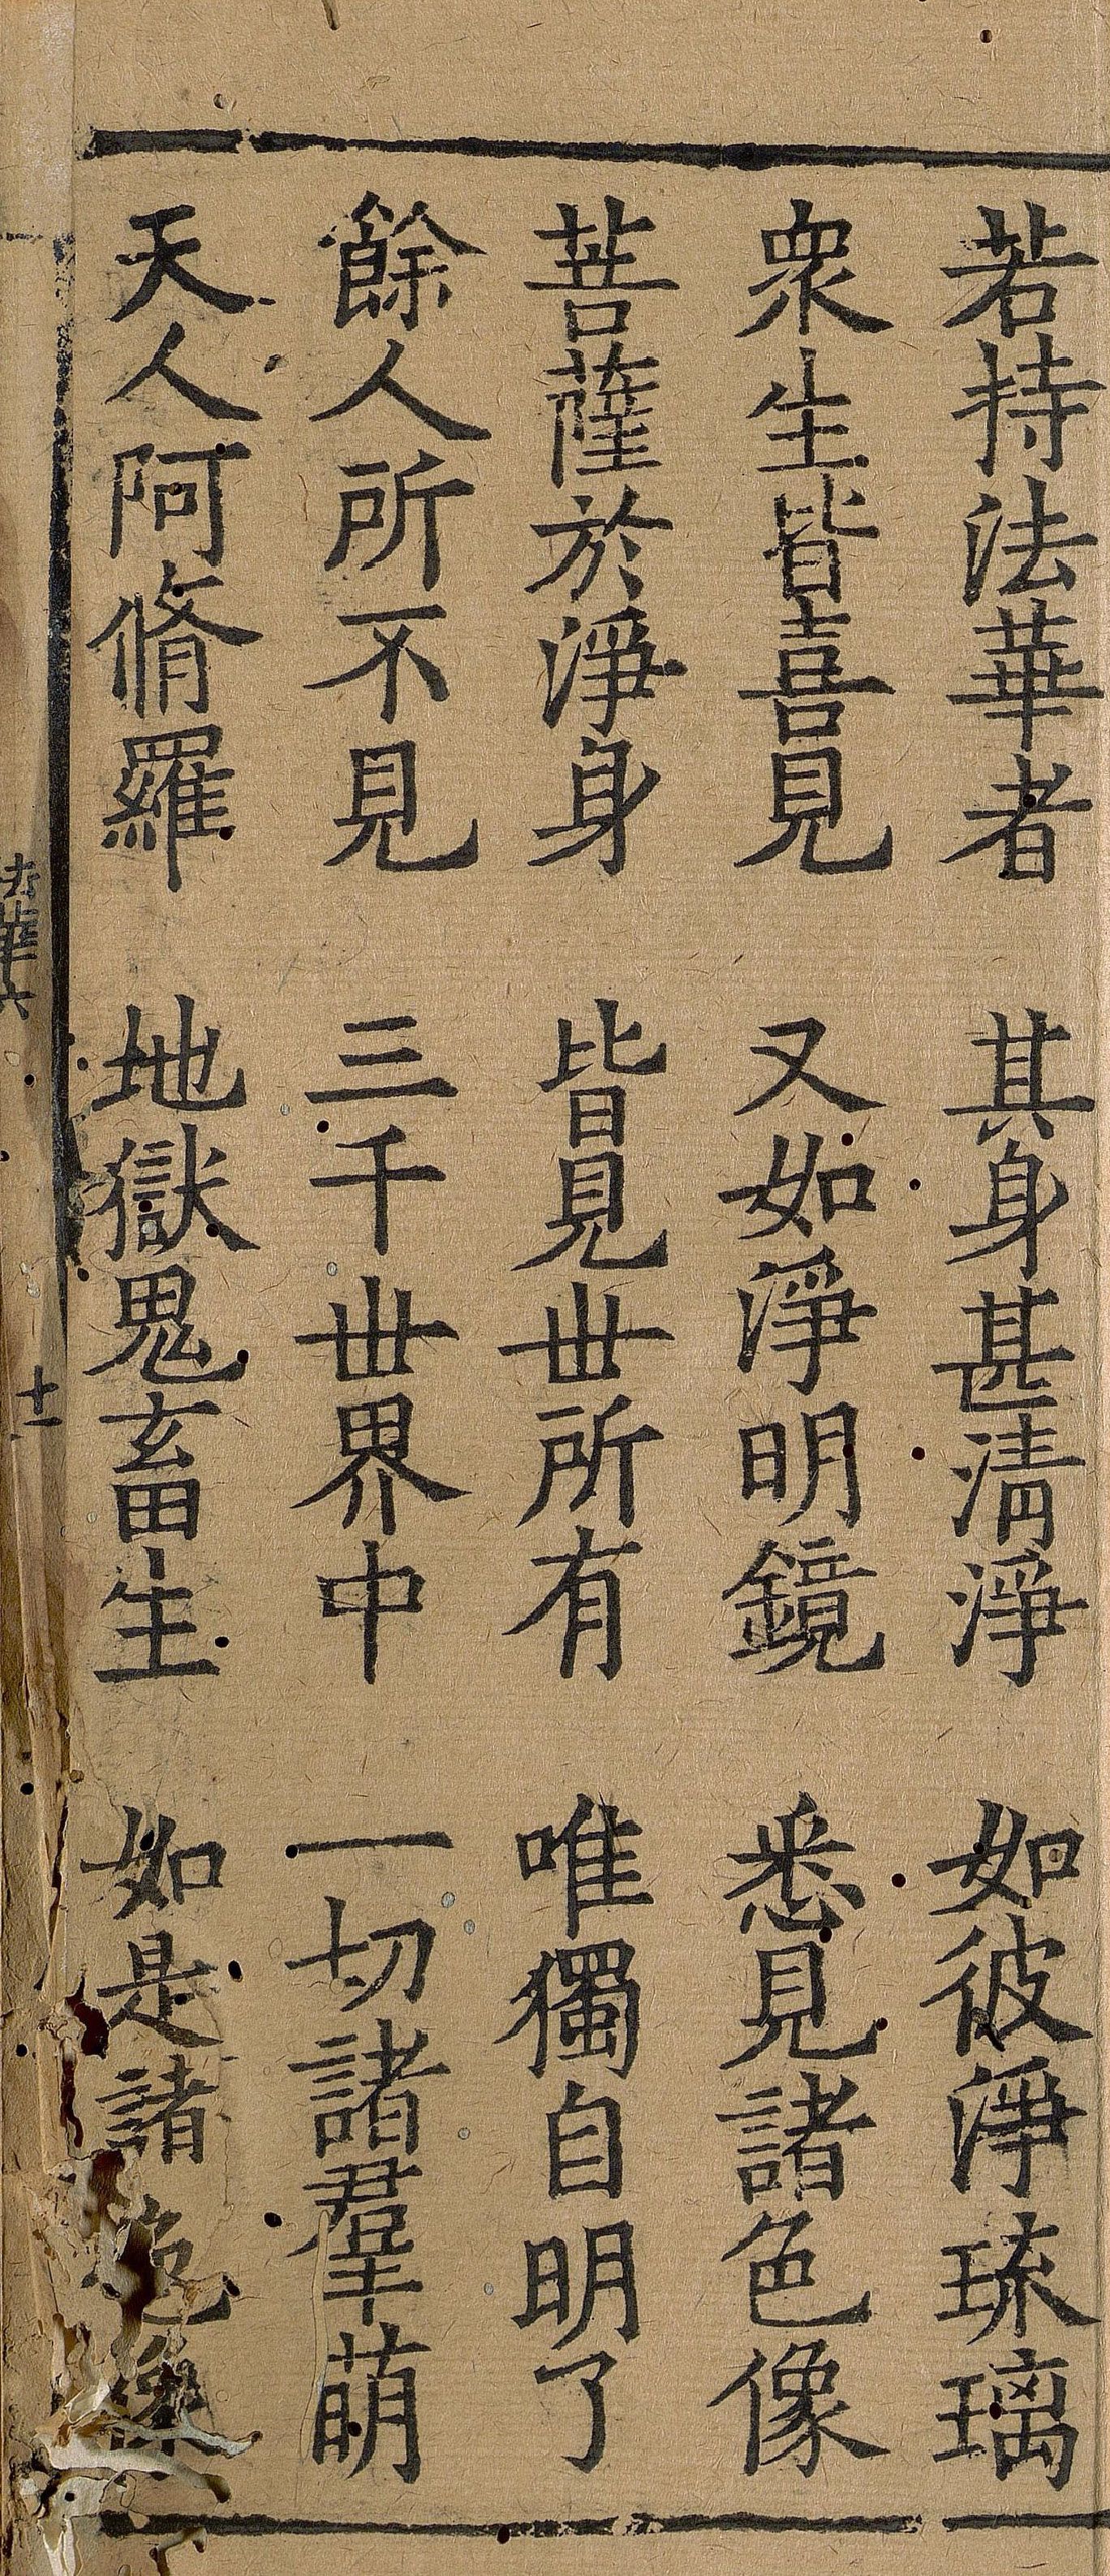 若持法華者　其身甚清淨　如彼淨琉璃
衆生皆喜見　又如淨明鏡　悉見諸色像
菩薩於淨身　皆見丗所有　唯獨自明了
餘人所不見　三千丗界中　一切諸羣萌
天人阿脩羅　地獄鬼畜生　如是諸色像
法華六
十一